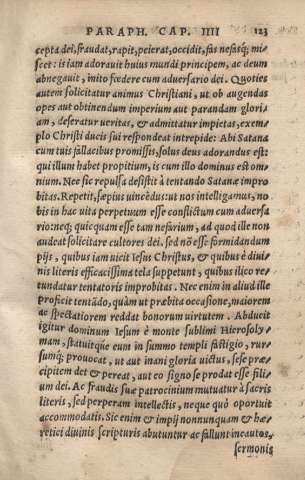 PARAPH. CAP. IIII 123
cepta dei, fraudat, rapit, peierat, occidit, fas nefasq; mi-
scet: is iam adorauit huius mundi principem, ac deum
abnegauit, inito fœdere cum aduersario dei. Quoties
autem solicitatur animus Christiani, ut ob augendas
opes aut obtinendum imperium aut parandam glori-
am, deseratur ueritas, & admittatur impietas, exem-
plo Christi ducis sui respondeat intrepide: Abi Satana
cum tuis fallacibus promissis, solus deus adorandus est:
qui illum habet propitium, is cum illo dominus est om-
nium. Nec sic repulsa desistit à tentando Satanæ impro-
bitas. Repetit, sæpius uincēdus: ut nos intelligamus, no
bis in hac uita perpetuum esse conflictum cum aduersa
rio: neq; quicquam esse tam nefarium, ad quod ille non
audeat solicitare cultores dei. sed nō esse formidandum
pijs, quibus iam uicit Iesus Christus, & quibus è diui-
nis literis efficacissima tela suppetunt, quibus ilico re-
tundatur tentatoris improbitas. Nec enim in aliud ille
proficit tentādo, quàm ut præbita occasione, maiorem
ac spectatiorem reddat bonorum uirtutem. Abducit
igitur dominum Iesum è monte sublimi Hierosoly-
mam, statuitque eum in summo templi fastigio, rur-
sumq; prouocat, ut aut inani gloria uictus, sese præ-
cipitem det & pereat, aut eo signo se prodat esse fili-
um dei. Ac fraudis suæ patrocinium mutuatur à sacris
literis, sed perperam intellectis, neque quò oportuit
accommodatis. Sic enim & impij nonnunquam & hæ-
retici diuinis scripturis abutuntur ac fallunt incautos,
sermonis